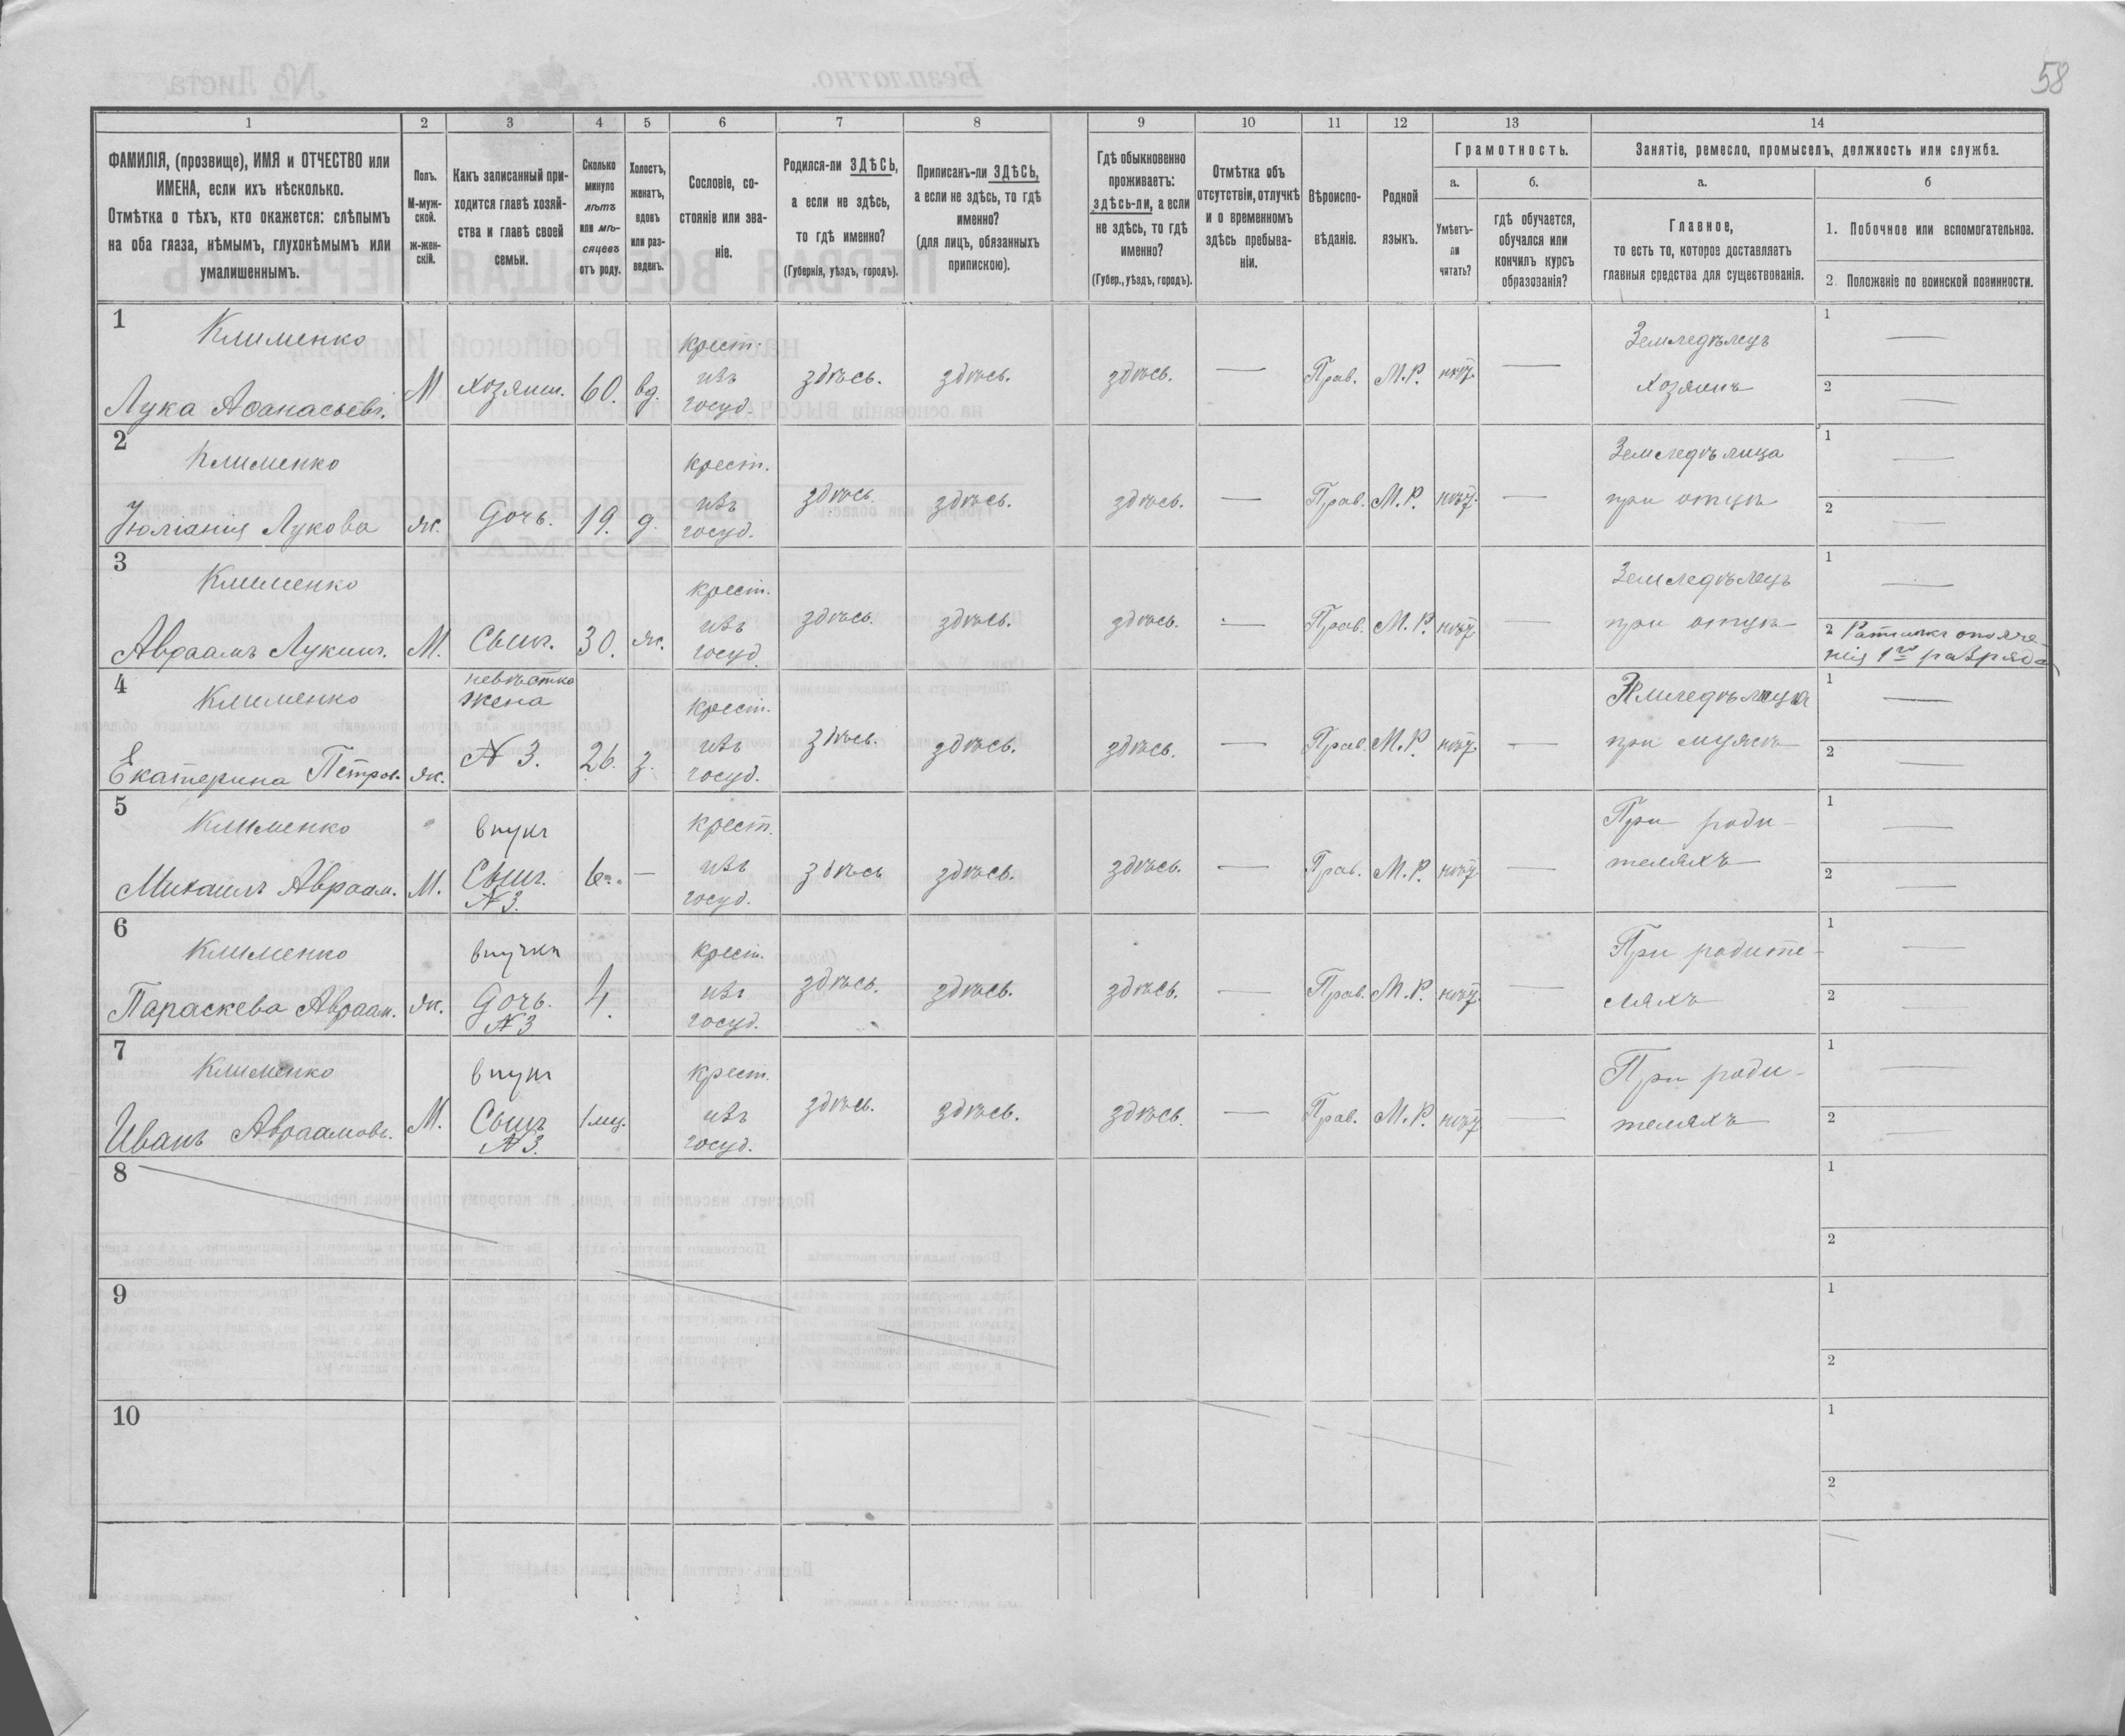 58
1 2 3 4 5 6 7 8 9 10 11 12 13 14
ФАМИЛІЯ, (прозвище), ИМЯ и ОТЧЕСТВО или
ИМЕНА, если ихъ нѣсколько.
Отмѣтка о тѣхъ, кто окажется: слѣпымъ
на оба глаза, нѣмымъ, глухонѣмымъ или
умалишеннымъ.
Полъ.
М-муж-
ской.
ж-жен-
скій.
Какъ записанный при-
ходится главѣ хозяй-
ства и главѣ своей
семьи.
Сколько
минуло
лѣтъ
или мѣ-
сяцевъ
отъ роду.
Холостъ,
женатъ,
вдовъ
или раз-
веденъ.
Сословіе, со-
стояніе или зва-
ніе.
Родился-ли ЗДѢСЬ,
а если не здѣсь,
то гдѣ именно?
(Губернія, уѣздъ, городъ).
Приписанъ-ли ЗДѢСЬ,
а если не здѣсь, то гдѣ
именно?
(для лицъ, обязанныхъ
припискою).
Гдѣ обыкновенно
проживаетъ:
здѣсь-ли, а если
не здѣсь, то гдѣ
именно?
(Губер., уѣздъ, городъ).
Отмѣтка объ
отсутствіи, отлучкѣ
и о временномъ
здѣсь пребыва-
ніи.
Вѣроиспо-
вѣданіе.
Родной
языкъ.
Грамотность.
а.
Умѣетъ-
ли
читать?
б.
гдѣ обучается,
обучался или
кончилъ курсъ
образованія?
Занятіе, ремесло, промыселъ, должность или служба.
а.
Главное,
то есть то, которое доставляетъ
главныя средства для существованія.
б
1. Побочное или вспомогательное.
2. Положеніе по воинской повинности.
1
Клименко
Лука Аѳанасьевъ.
М
хозяин.
60.
вд.
крест.
изъ
госуд.
здѣсь.
здѣсь.
здѣсь.
—
Прав.
М.Р.
нѣт
—
Земледѣлецъ
хозяинъ
1 —
2 —
2
Клименко
Юліанія Лукова
ж.
Дочь.
19.
д.
крест.
изъ
госуд.
здѣсь.
здѣсь.
здѣсь.
—
Прав.
М.Р.
нѣт
—
Земледѣлица
при отцѣ
1 —
2 —
3
Клименко
Авраамъ Лукин.
М.
Сынъ.
30.
ж.
крест.
изъ
госуд.
здѣсь.
здѣсь.
здѣсь.
—
Прав.
М.Р.
нѣт
—
Земледѣлецъ
при отцѣ
1 —
2 Ратникъ ополче
нія 1го разряда
4
Клименко
Екатерина Петров.
ж.
невѣстка
жена
№ 3.
26.
з.
крест.
изъ
госуд.
здѣсь.
здѣсь.
здѣсь.
—
Прав.
М.Р.
нѣт
—
Земледѣлица
при мужѣ
1 —
2 —
5
Клименко
Михаилъ Авраам.
М.
внукъ
Сынъ.
№ 3.
6
—
крест.
изъ
госуд.
здѣсь
здѣсь.
здѣсь.
—
Прав.
М.Р.
нѣт
—
При роди-
теляхъ
1 —
2 —
6
Клименко
Параскева Авраам.
ж.
внучка
Дочь.
№ 3
4.
крест.
изъ
госуд.
здѣсь.
здѣсь.
здѣсь.
—
Прав.
М.Р.
нѣт
—
При родите-
ляхъ
1 —
2 —
7
Клименко
Иванъ Авраамовъ.
М.
внукъ
Сынъ
№ 3.
1 мц.
крест.
изъ
госуд.
здѣсь.
здѣсь.
здѣсь.
—
Прав.
М.Р.
нѣт
—
При роди-
теляхъ
1 —
2 —
8
1
2
9
1
2
10
1
2